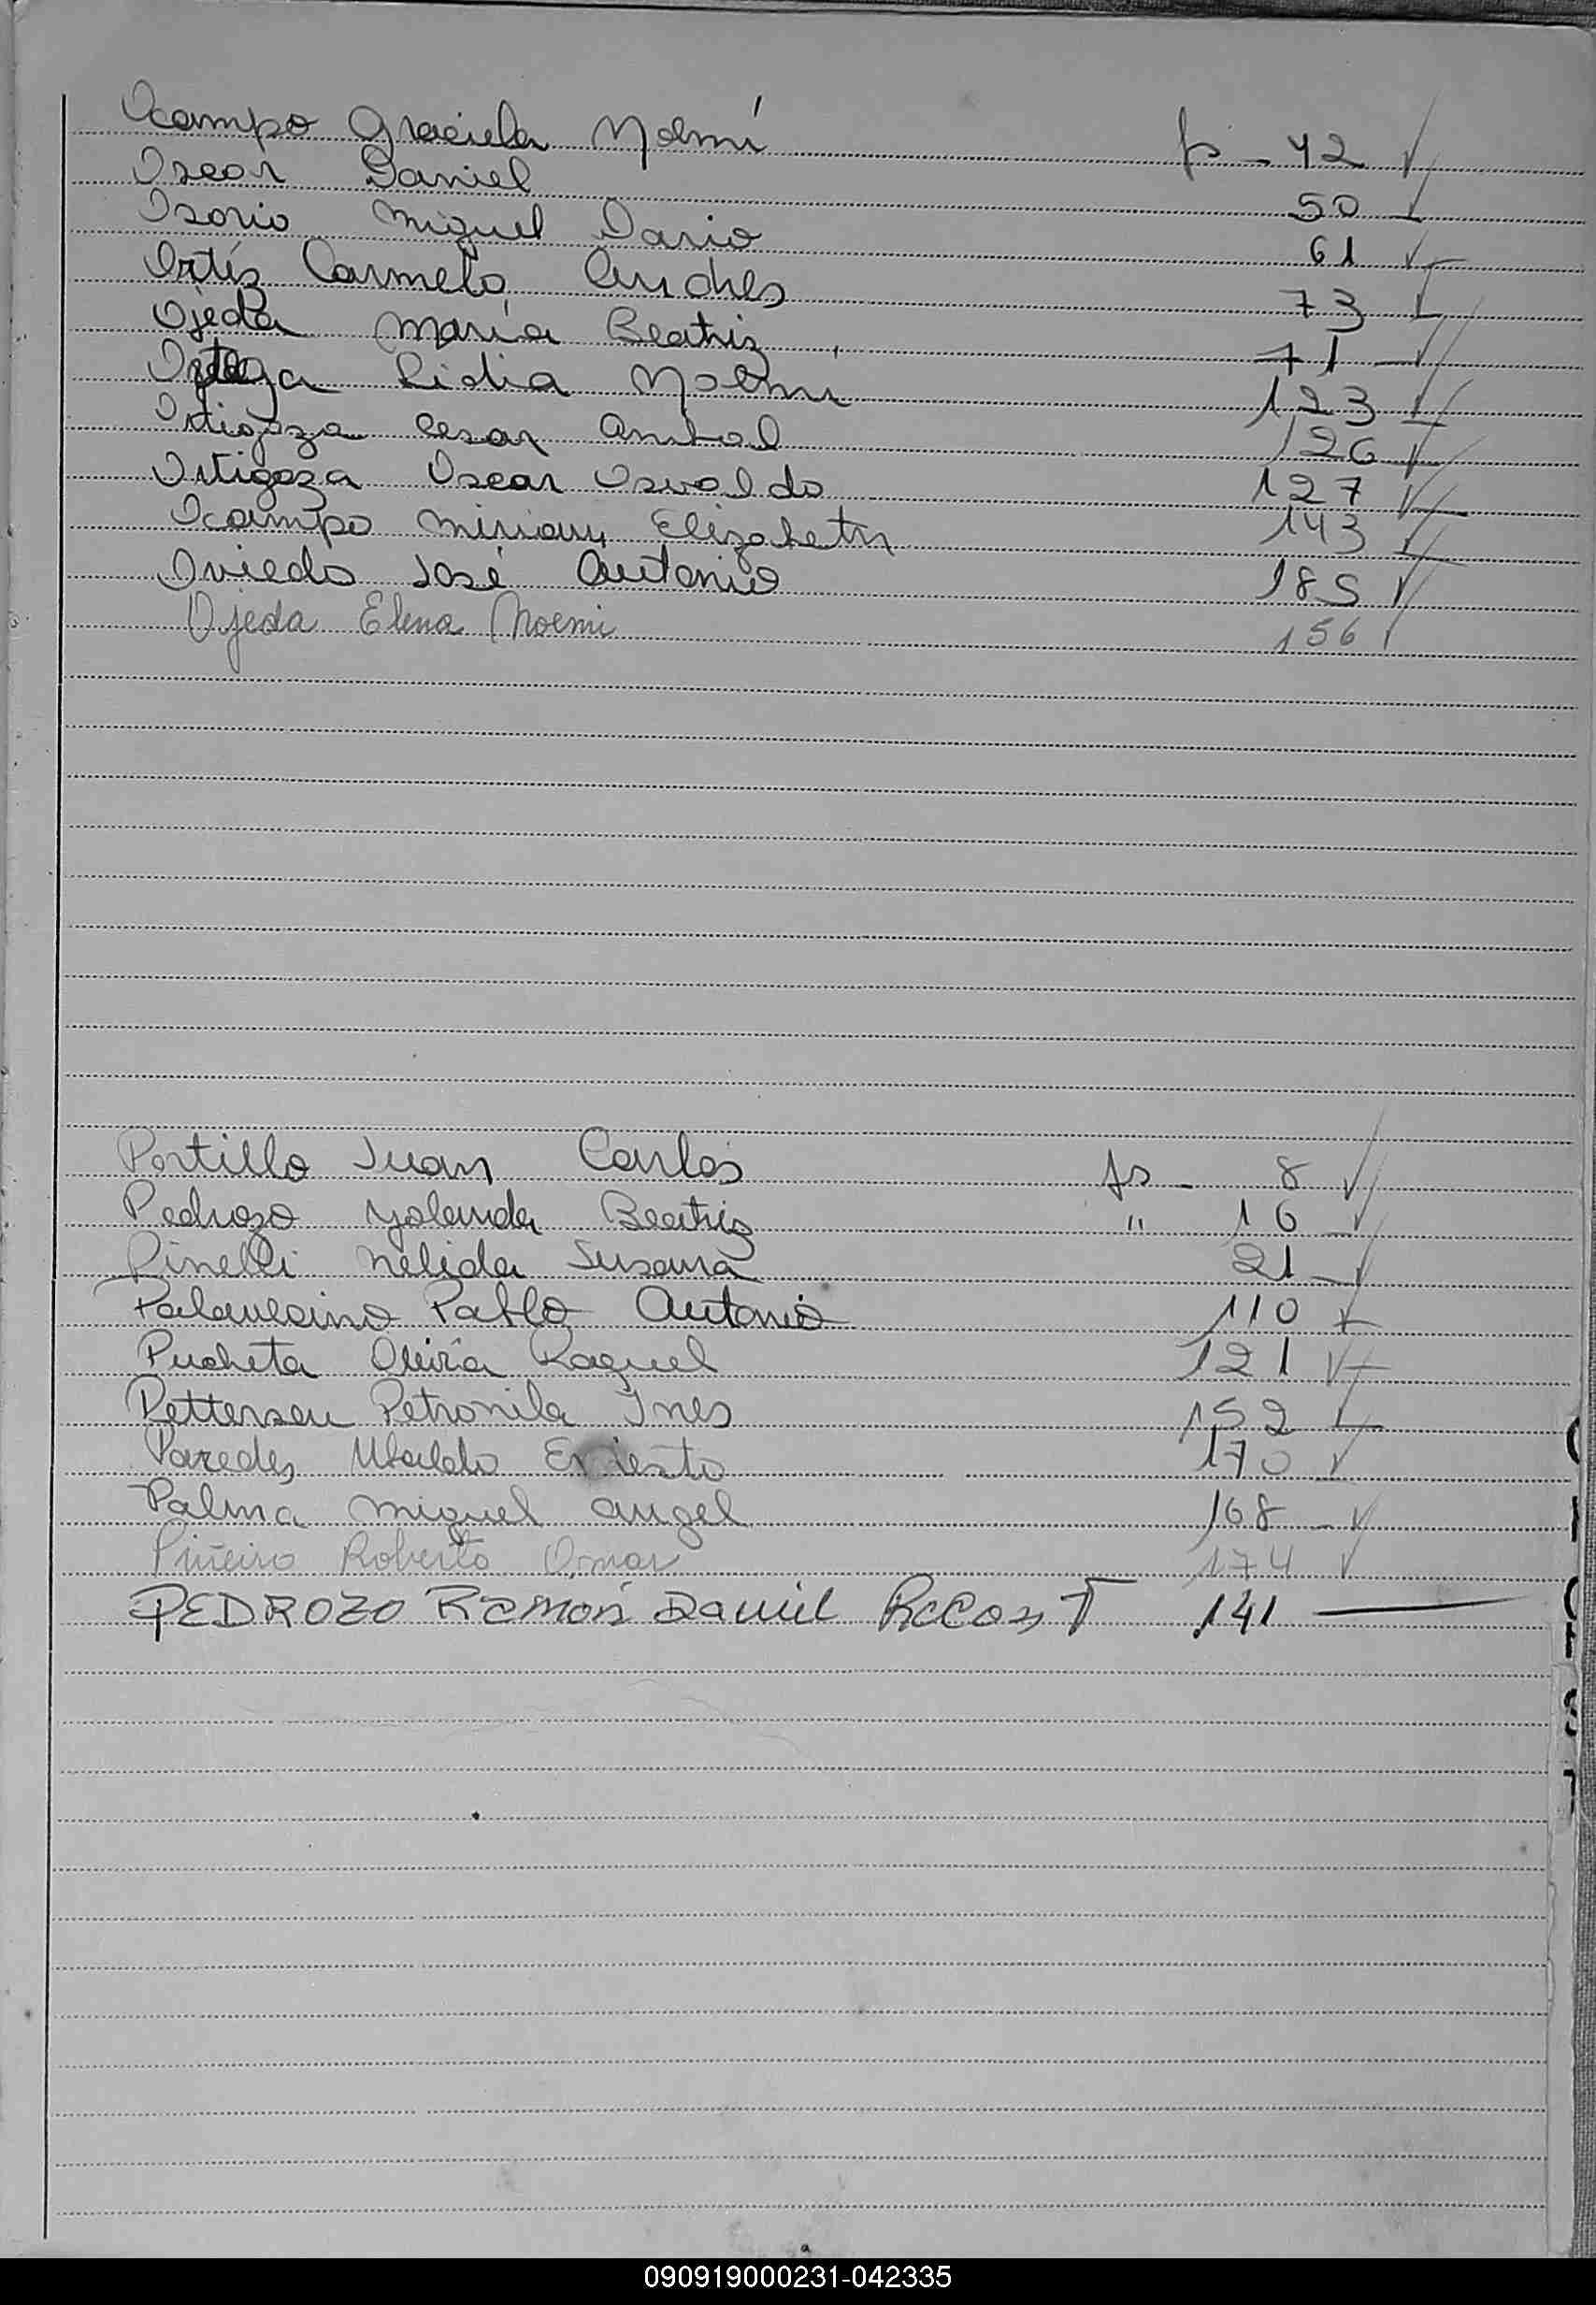 Ocampo Graciela Noemí fs - 42
Oscar Daniel 50
Osorio Miguel Dario 61
Ortís Carmelo Andres 73
Ojeda María Beatriz 71
Ortega Lidia Noemi 123
Ortigoza Cesar Anibal 126
Ortigoza Oscar Osvaldo 127
Ocampo Miriam Elizabeth 143
Oviedo José Antonio 185
Ojeda Elena Noemi 156
Portillo Juan Carlos fs - 8
Pedrozo Yolanda Beatriz " 16
Pinelli Nelida Susana 21
Palavecino Pablo Antonio 110
Pucheta Raquel 121
Pettersen Petronila Ines 152
Paredes Ubaldo Ernesto 170
Palma Miguel Angel 168
Piñeiro Roberto Omar 174
PEDROZO Ramón Daniel 141
090919000231-042335